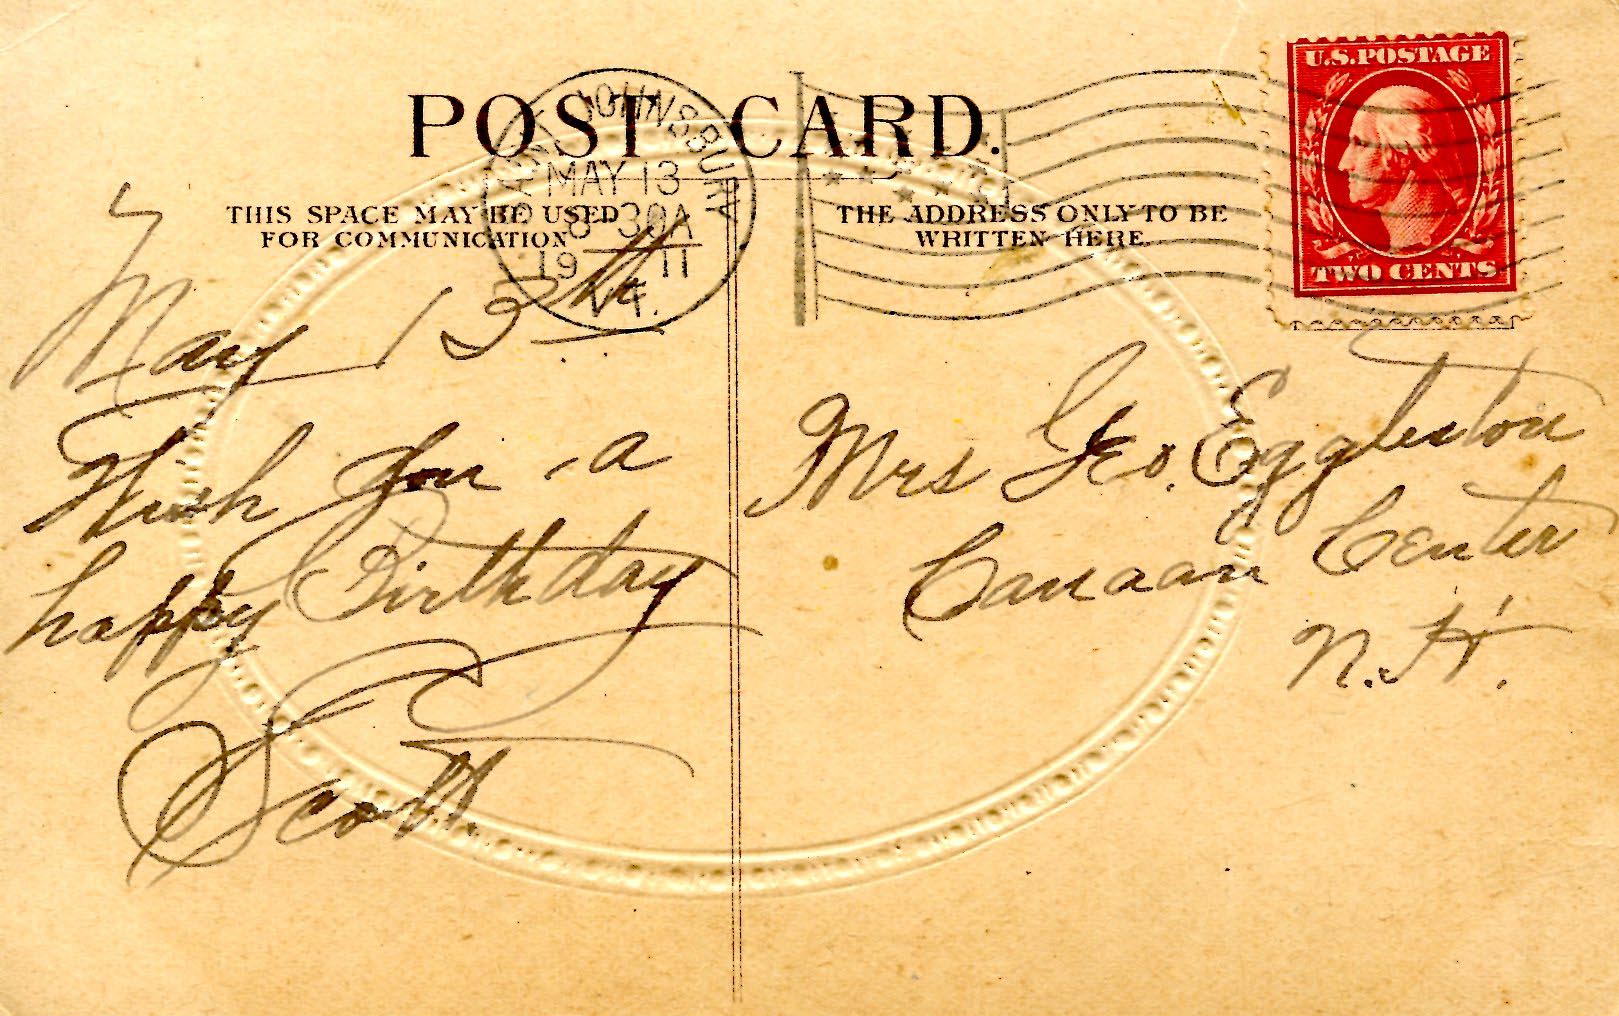 U.S. POSTAGE
TWO CENTS
POST CARD.
SAINT JOHNSBURY
MAY 13
8-30A
1911
VT.
THIS SPACE MAY BE USED
FOR COMMUNICATION
THE ADDRESS ONLY TO BE
WRITTEN HERE.
May 13th
Wish you a
happy Birthday
Scott.
Mrs Geo. Eggleston
Canaan Center
N.H.